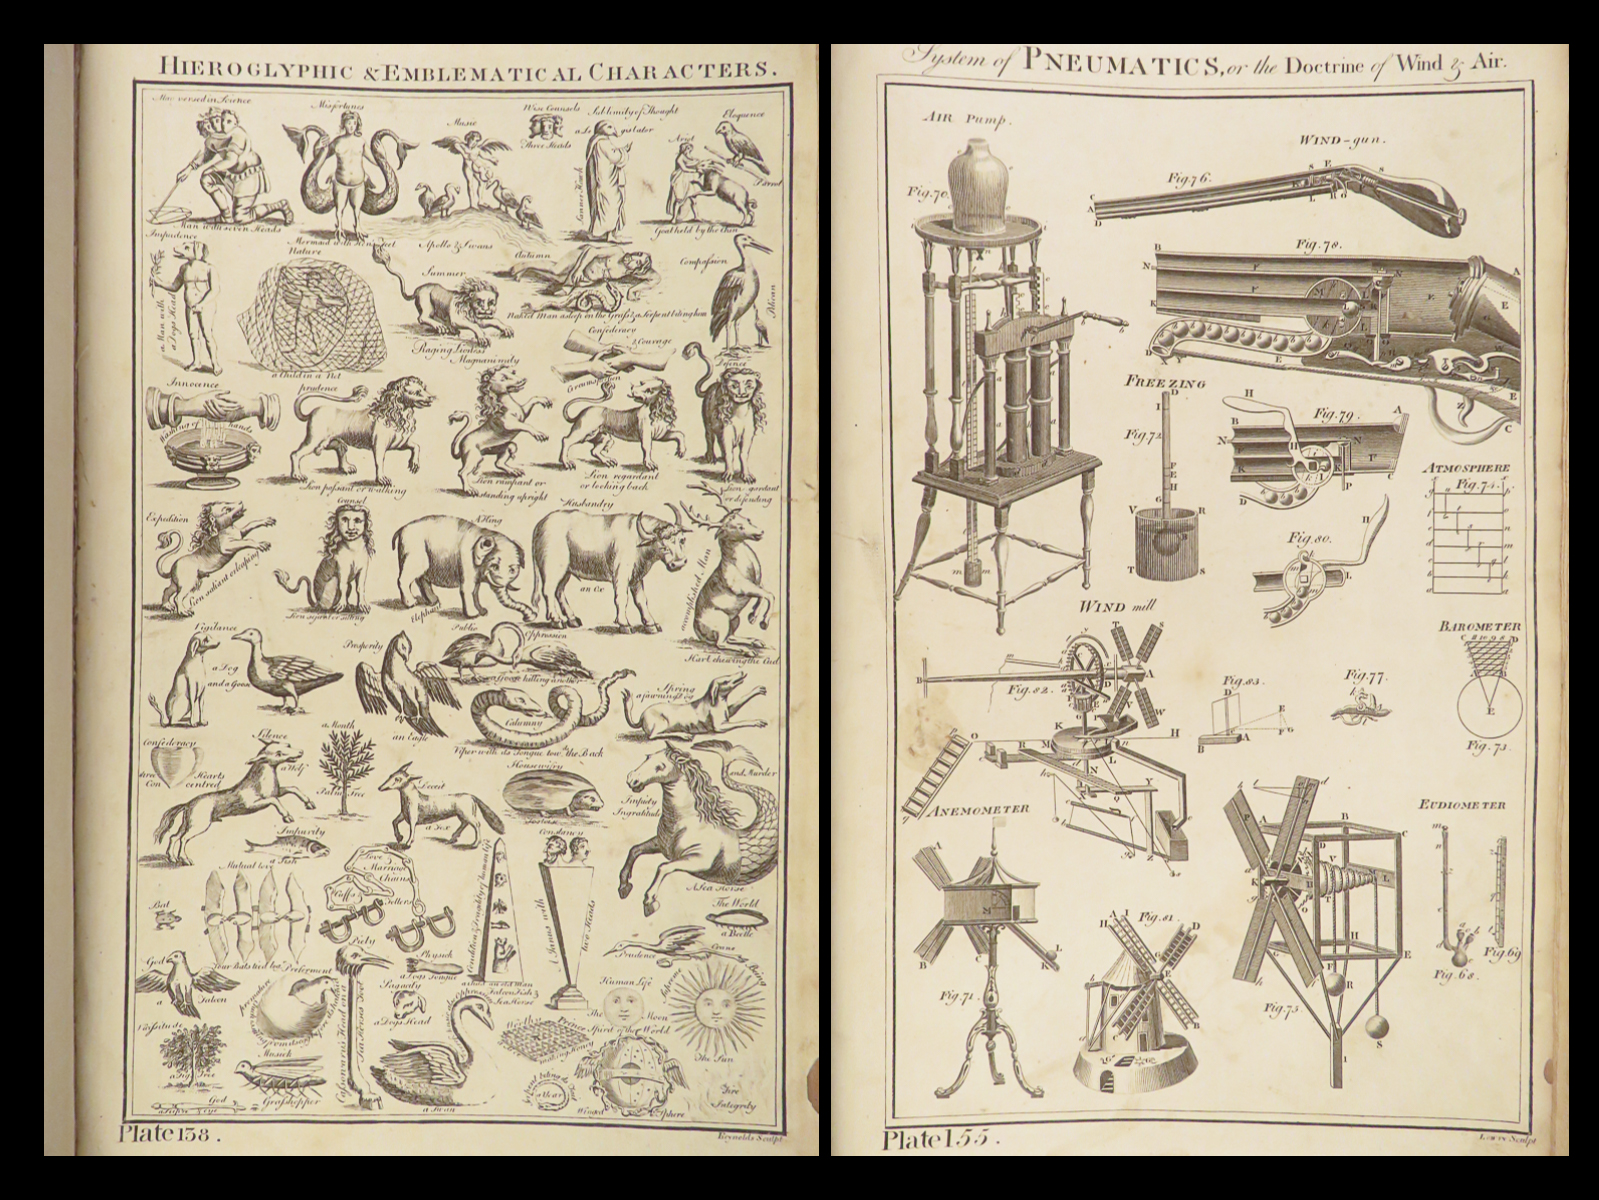 HIEROGLYPHIC & EMBLEMATICAL CHARACTERS.
Man versed in Science
Misfortunes
Music
Wise Counsels
Three Heads
Sublimity of Thought
Eloquence
Man with seven Heads
Mermaid with Hens feet
Apollo & Swans
Goat held by the Chin
Impudence
a Man with
a Dogs Head
Nature
a Child in a Net
Summer
Raging Lioness
Autumn
Naked Man asleep in the Grass & a Serpent biting him
Compassion
Pelican
Confederacy
& Courage
Magnanimity
Defence
Innocence
Washing of hands
prudence
Lion passant or walking
Lion rampant or
standing upright
Lion regardant
or looking back
Lion gardant
or defending
Expedition
Lion saliant or leaping
Counsel
A King
Elephant
Husbandry
an Ox
accomplished Man
Hart chewing the Cud
Vigilance
a Dog
and a Goose
Prosperity
an Eagle
Public
Oppression
a Goose killing another
Calumny
Viper with its Tongue tow. the Back
Spring
Confederacy
three Hearts
Con centred
Silence
a Wolf
a Month
Palm Tree
Deceit
a Fox
Housewifry
Impiety
Ingratitude
and Murder
A Sea Horse
Impurity
a Fish
Mutual love
Love
Marriage
Chains
Cuffs &
Fetters
Constancy
A Janus with
Two Heads
The World
a Beetle
Bat
Four Bats tied tog.
Preferment
Piety
Physick
a Dogs Tongue
Cranes
Prudence
God
a
Falcon
Sagacity
a Dogs Head
Human Life
The Moon
Spirit of the World
Supreme Being
The Sun
Vicissitude
a Fig Tree
Musick
Grasshopper
a Swan
Prince
making Honey
a Year
Winged Sphere
Fire
Integrity
God
Plate 138.
Reynolds Sculpt.
System of PNEUMATICS, or the Doctrine of Wind & Air.
AIR Pump.
Fig. 70.
WIND-gun.
Fig. 76.
Fig. 78.
FREEZING
Fig. 72.
Fig. 79.
ATMOSPHERE
Fig. 74.
Fig. 80.
WIND mill
BAROMETER
Fig. 82.
Fig. 83.
Fig. 77.
Fig. 73.
ANEMOMETER
EUDIOMETER
Fig. 81.
Fig. 71.
Fig. 75.
Fig. 68.
Fig. 69
Plate 155.
Lewis Sculpt.